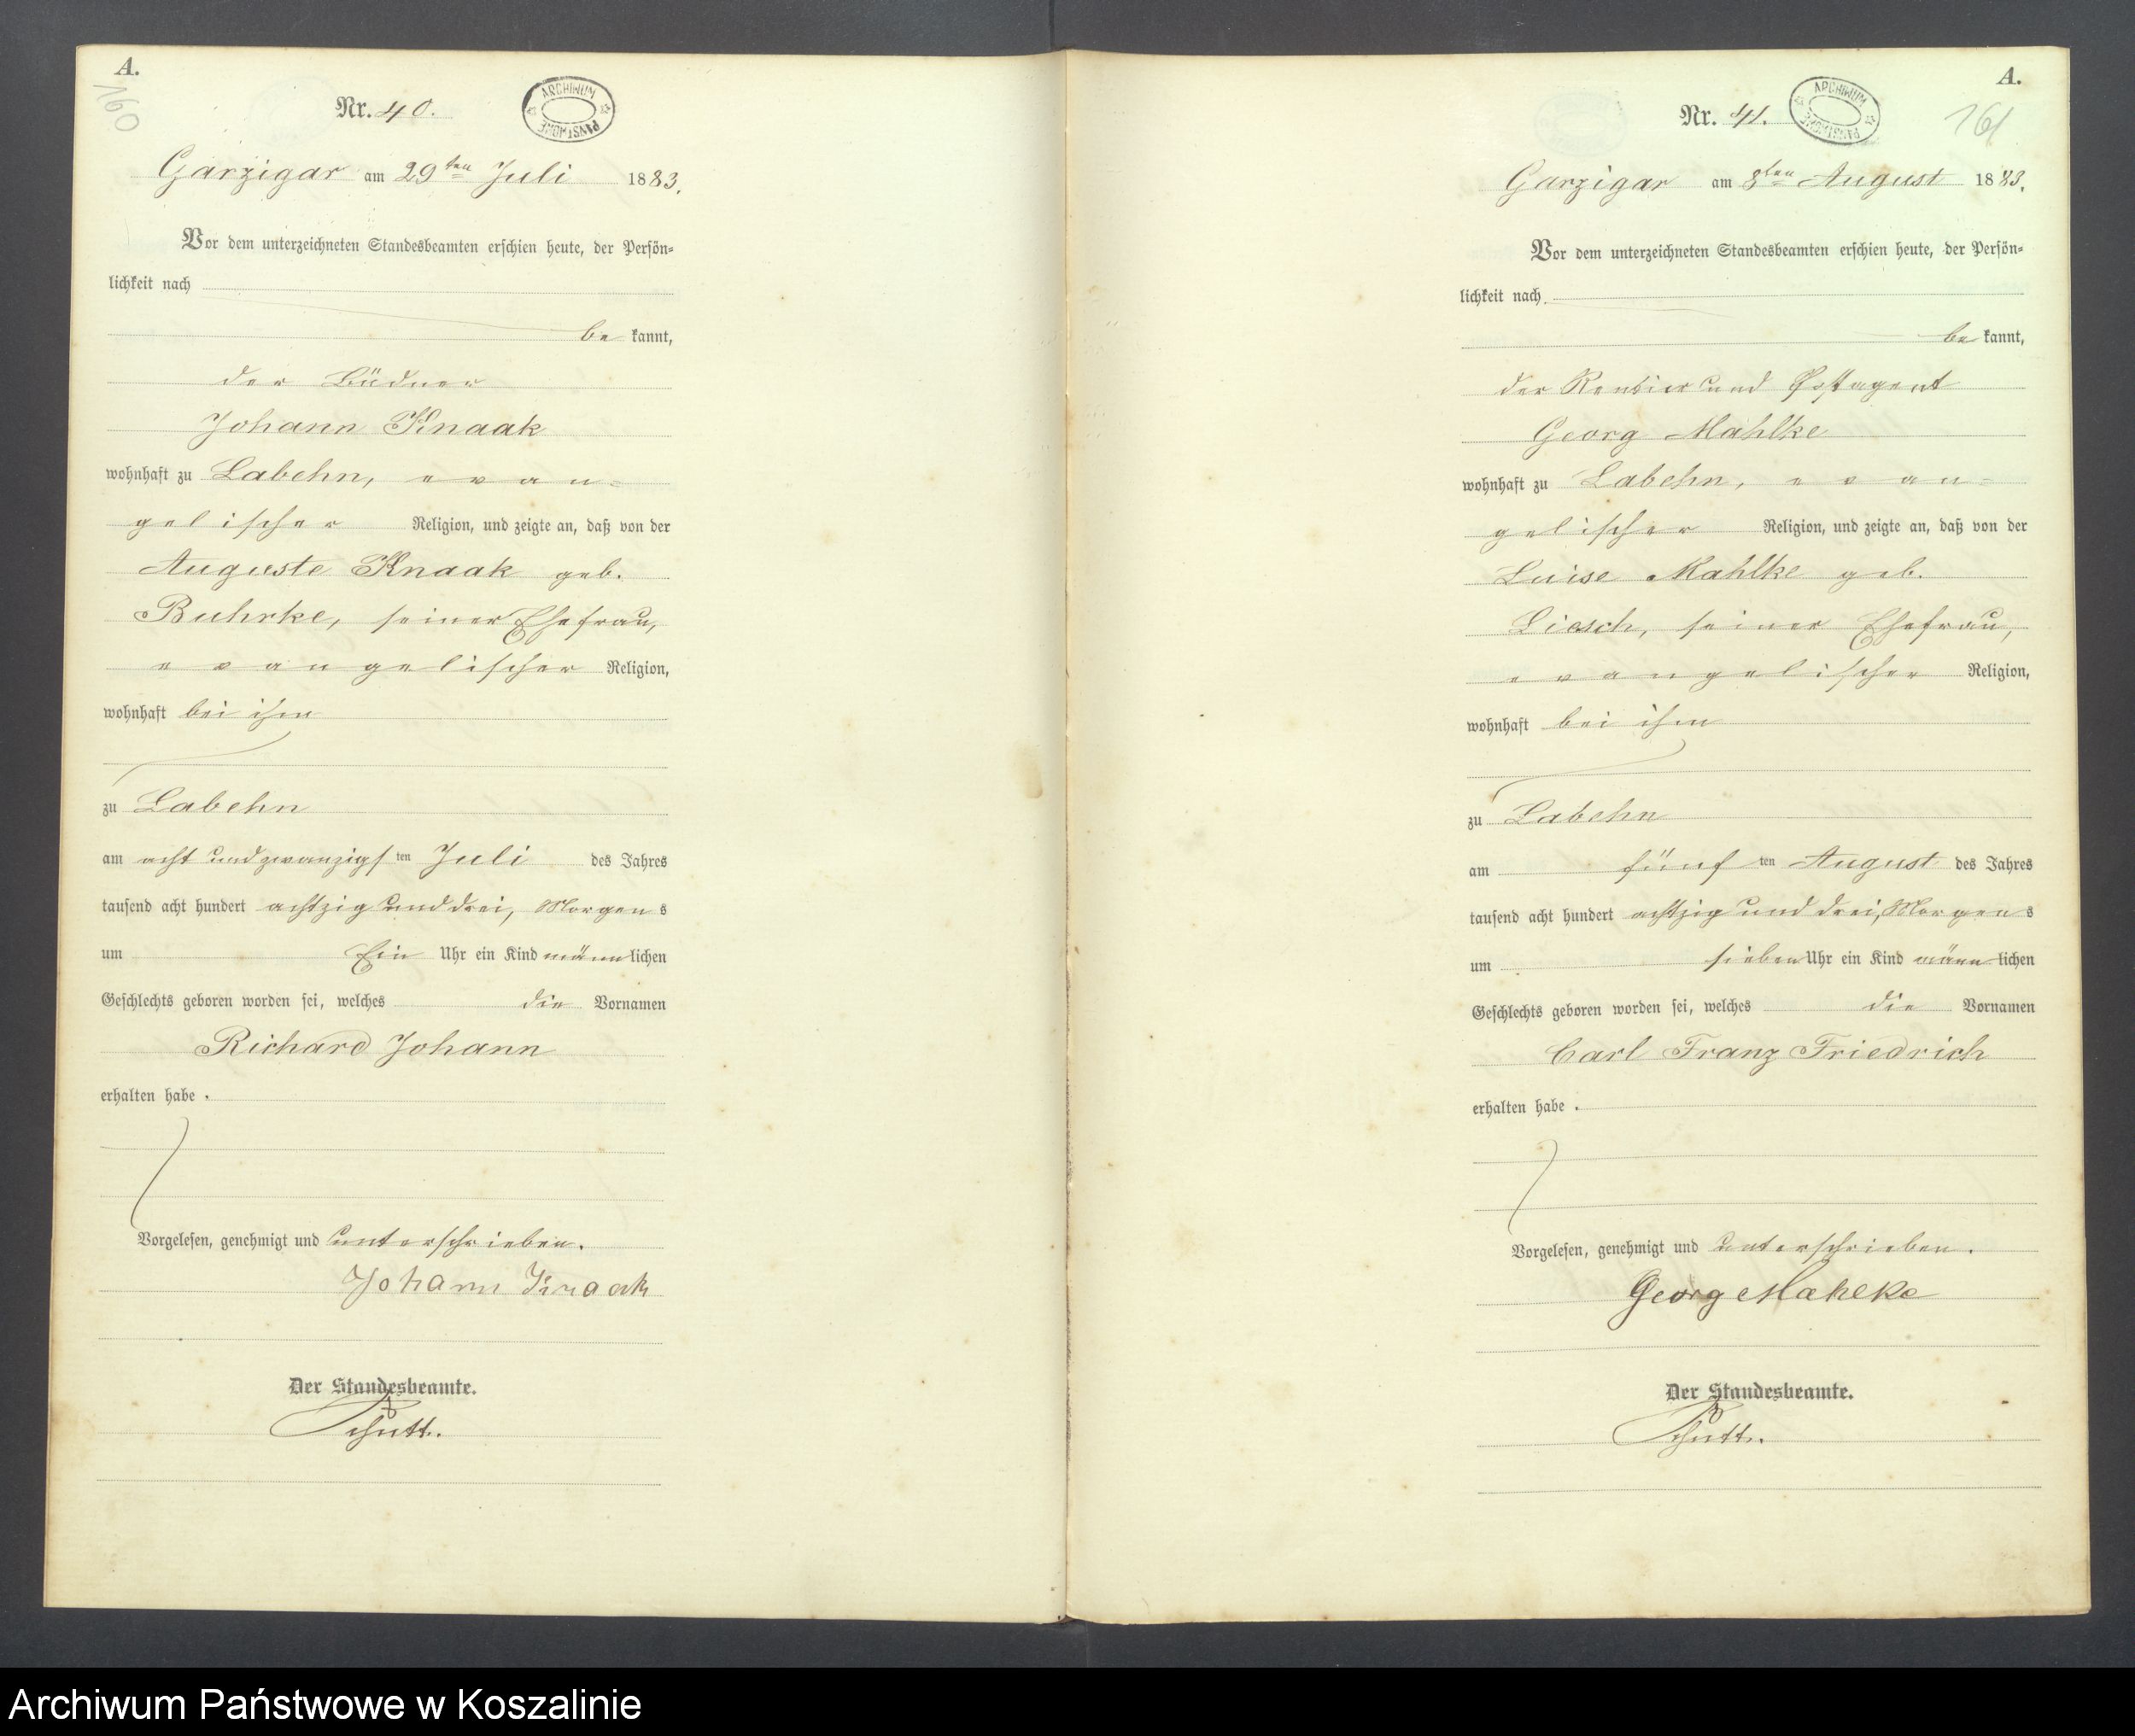 A.
160
Nr. 40.
ARCHIWUM PAŃSTWOWE
Garzigar am 29ten Juli 1883.
Vor dem unterzeichneten Standesbeamten erschien heute, der Persön-
lichkeit nach
be kannt,
der Büdner
Johann Knaak
wohnhaft zu Labehn, evan-
gelischer Religion, und zeigte an, daß von der
Auguste Knaak geb.
Buhrke, seiner Ehefrau,
evangelischer Religion,
wohnhaft bei ihm
zu Labehn
am acht und zwanzigsten Juli des Jahres
tausend acht hundert achtzig und drei, Morgens
um Ein Uhr ein Kind männlichen
Geschlechts geboren worden sei, welches die Vornamen
Richard Johann
erhalten habe.
Vorgelesen, genehmigt und unterschrieben.
Johann Knaak
Der Standesbeamte.
Schutt.
A.
161
Nr. 41.
ARCHIWUM PAŃSTWOWE
Garzigar am 8ten August 1883.
Vor dem unterzeichneten Standesbeamten erschien heute, der Persön-
lichkeit nach
be kannt,
der Rentier und Postagent
Georg Mahlke
wohnhaft zu Labehn, evan-
gelischer Religion, und zeigte an, daß von der
Luise Mahlke geb.
Liesch, seiner Ehefrau,
evangelischer Religion,
wohnhaft bei ihm
zu Labehn
am fünften August des Jahres
tausend acht hundert achtzig und drei, Morgens
um sieben Uhr ein Kind männlichen
Geschlechts geboren worden sei, welches die Vornamen
Carl Franz Friedrich
erhalten habe.
Vorgelesen, genehmigt und unterschrieben.
Georg Mahlke
Der Standesbeamte.
Schutt.
Archiwum Państwowe w Koszalinie